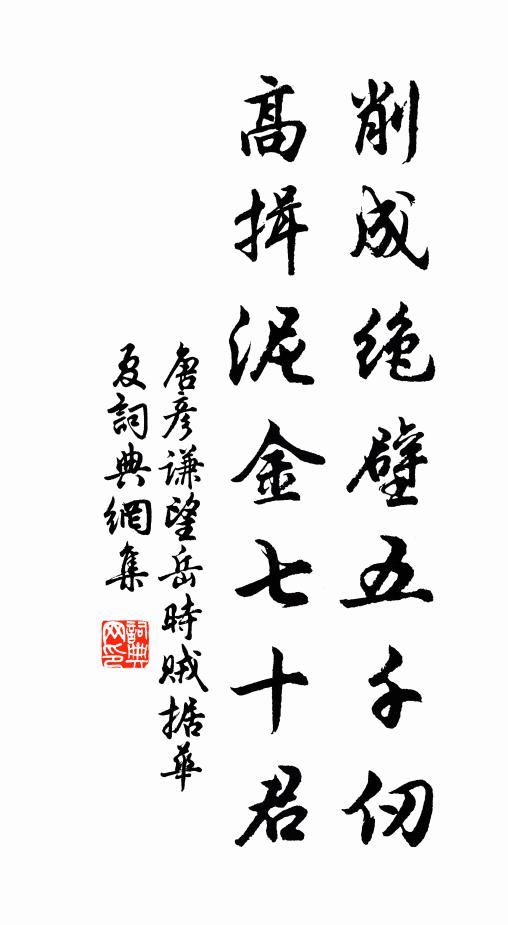 削成絶壁五千仞
高揖泥金七十君
唐彦谦望岳時賊据華
夏詞典網集
詞典網印